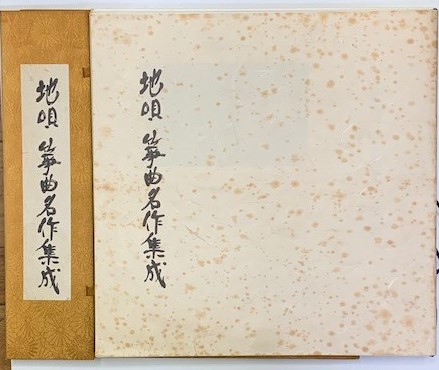 地唄 箏曲名作集成
地唄 箏曲名作集成